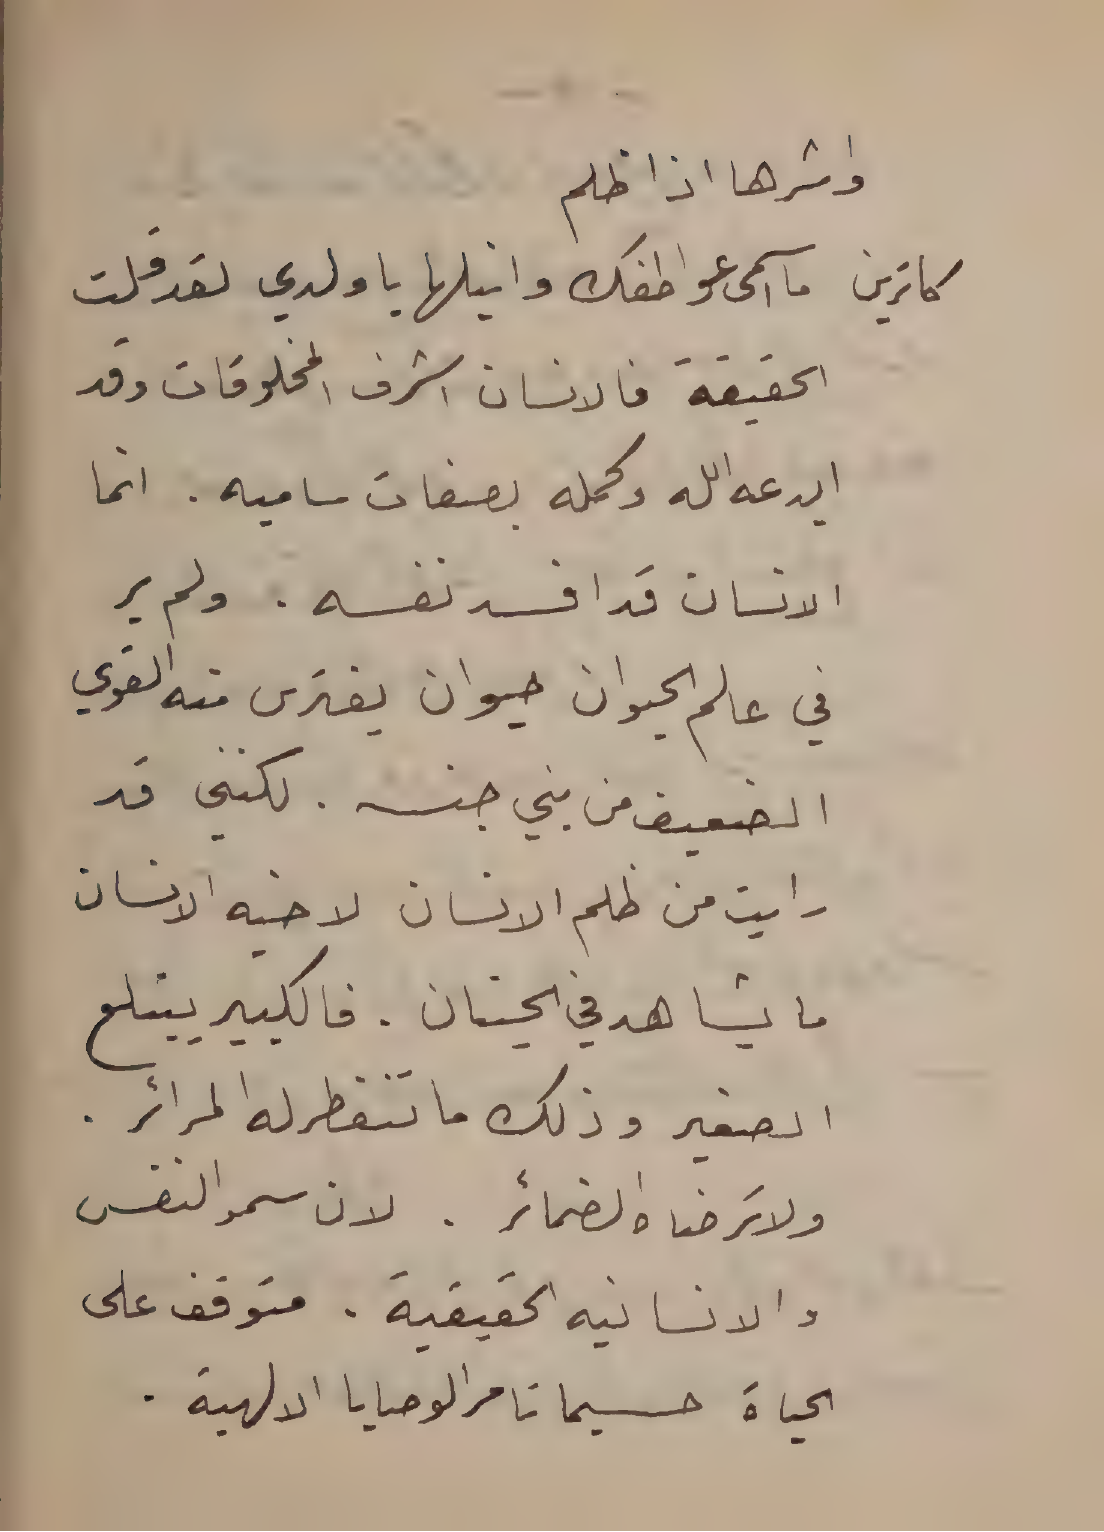 واشرها اذا ظلم
كاترين ما اسمى عواطفك وانبلها يا ولدي لقد قلت
الحقيقة فالانسان اشرف المخلوقات وقد
ابدعه الله وكمله بصفات ساميه . انما
الانسان قد افسد نفسه . ولم ير
في عالم الحيوان حيوان يفترس منه القوي
الضعيف من بني جنسه . لكنني قد
رايت من ظلم الانسان لاخيه الانسان
ما يشاهد في الحيتان . فالكبير يبتلع
الصغير وذلك ما تتفطر له المرائر .
ولا ترضاه الضمائر . لان سمو النفس
والانسانيه الحقيقية . متوقف على
الحياة حسيما تامر الوصايا الالهية .